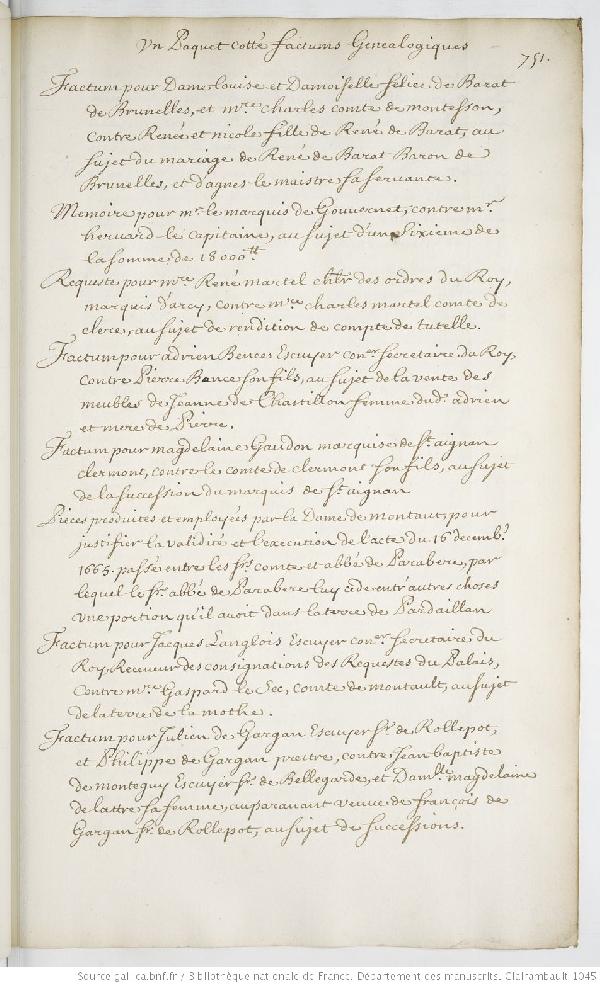 Un Paquet cotté factums Genealogiques
751.
Factum pour Dame Louise et Damoiselle felice de Barat
de Brunelles, et mre. charles comte de montesson,
contre Renée et nicole fille de René de Barat, au
sujet du mariage de René de Barat Baron de
Brunelles, et d'agnes le maistre sa servante.
Memoire pour mr. le marquis de Gouvernet, contre mr.
hervard le capitaine, au sujet d'une sixieme de
la somme de 18000tt
Requeste pour mre René martel chlr des ordres du Roy,
marquis d'arcy, contre mre charles martel comte de
clere, au sujet de rendition de compte de tutelle.
Factum pour adrien Bence Escuyer coner. secretaire du Roy,
contre Pierre Bence son fils, au sujet de la vente des
meubles de Jeanne de Chastillon femme dud. adrien
et mere de Pierre.
Factum pour magdelaine Gaudon marquise de st. aignan
clermont, contre le comte de clermont son fils, au sujet
de la succession du marquis de st. aignan
Pieces produites et employées par la Dame de montaut, pour
justifier la validité et l'execution de l'acte du 16 decemb.
1665. passé entre les srs. comte et abbé de Parabere, par
lequel le sr. abbé de Parabere luy cede entr'autres choses
une portion qu'il avoit dans la terre de Pardaillan
Factum pour Jacques Langlois Escuyer coner. secretaire du
Roy, Receveur des consignations des Requestes du Palais,
contre mre. Gaspard le Sec, comte de montault, au sujet
de la terre de la mothe.
Factum pour Julien de Gargan Escuyer sr. de Rollepot,
et Philippe de Gargan prestre, contre Jean baptiste
de monteguy Escuyer sr. de Bellegarde, et Damlle. magdelaine
de lattre sa femme, auparavant veuve de françois de
Gargan sr. de Rollepot, au sujet de successions.
Source gallica.bnf.fr / Bibliothèque nationale de France. Département des manuscrits. Clairambault 1045